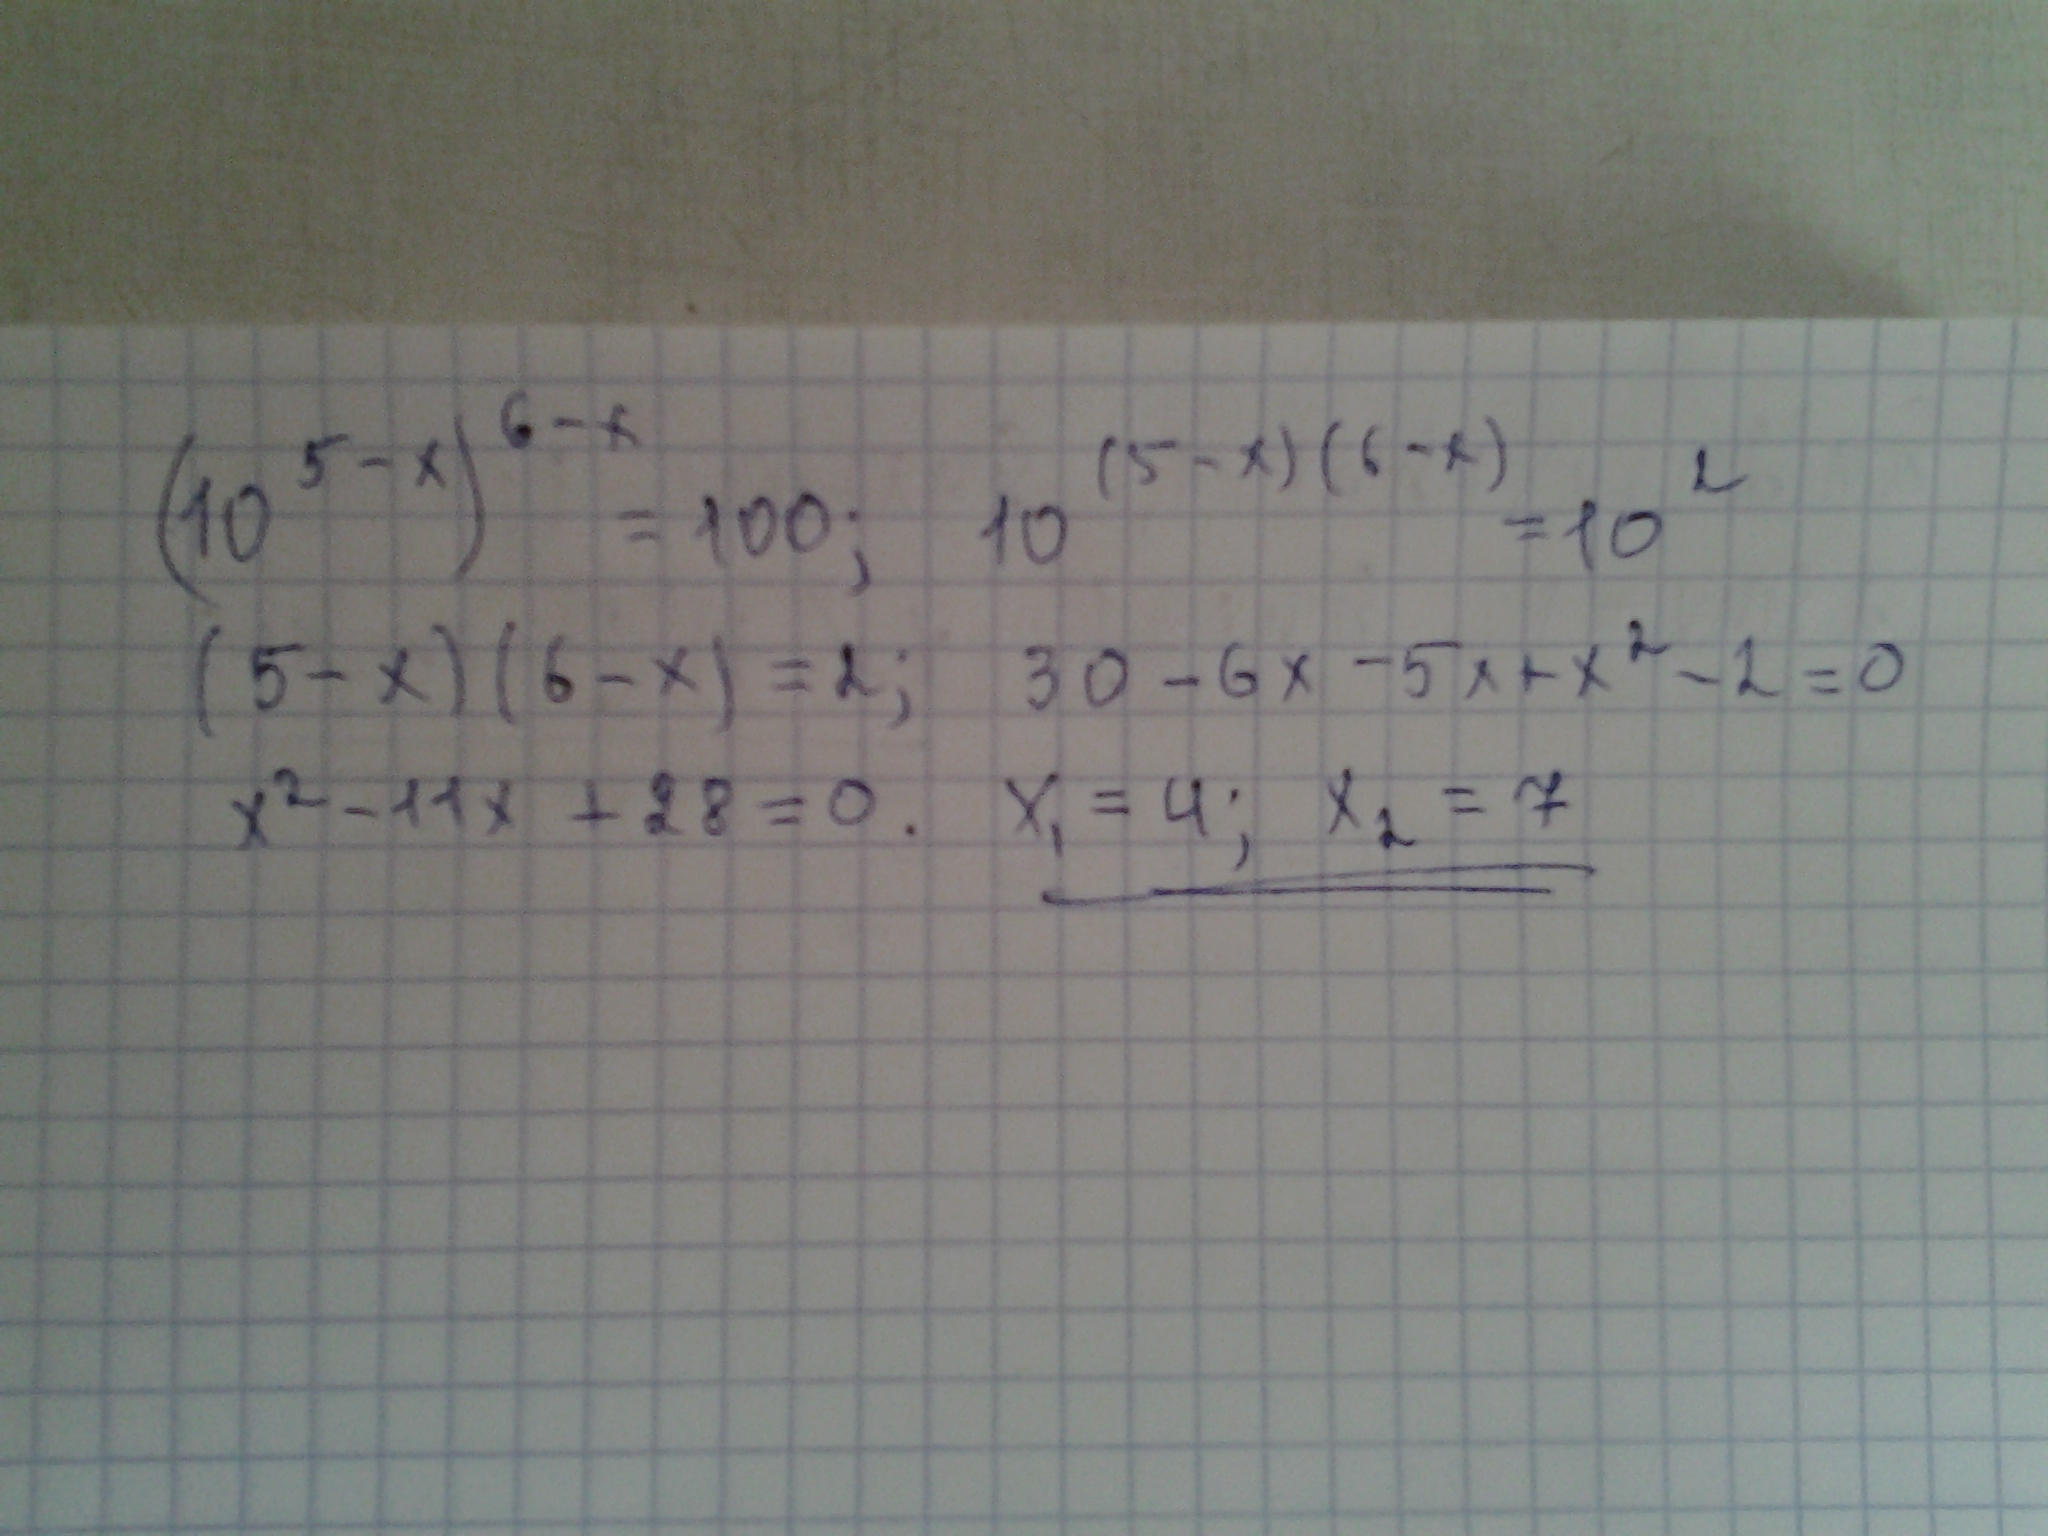 (10^{5-x})^{6-x} = 100; 10^{(5-x)(6-x)} = 10^2
(5-x)(6-x) = 2; 30 - 6x - 5x + x^2 - 2 = 0
x^2 - 11x + 28 = 0. x_1 = 4; x_2 = 7